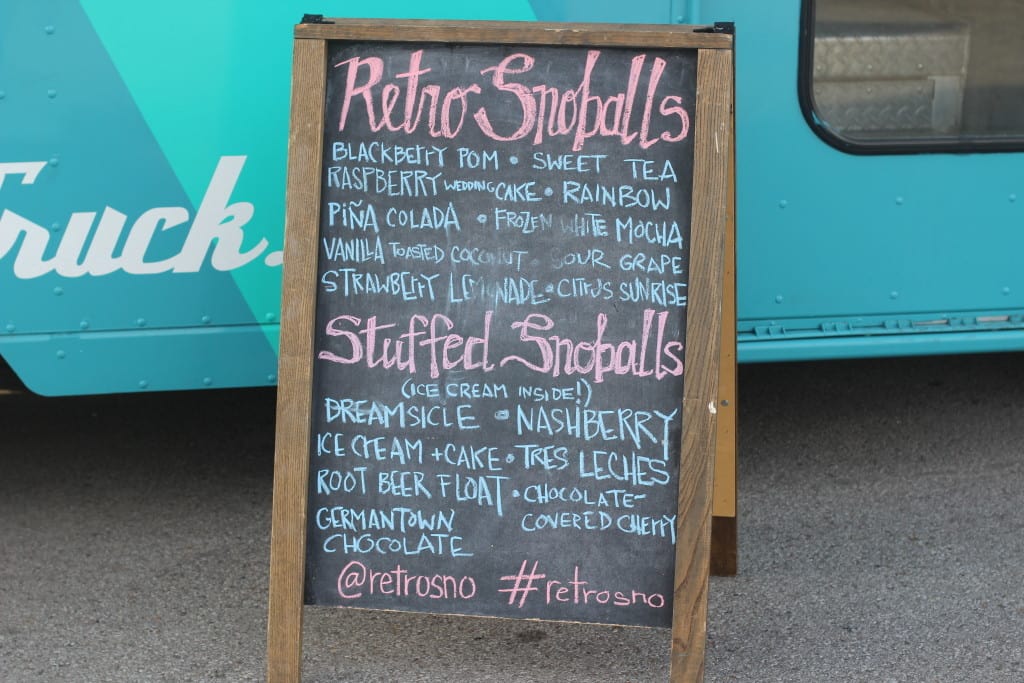 Truck.
Retro Snoballs
BLACKBERRY POM • SWEET TEA
RASPBERRY WEDDING CAKE • RAINBOW
PIÑA COLADA • FROZEN WHITE MOCHA
VANILLA TOASTED COCONUT • SOUR GRAPE
STRAWBERRY LEMONADE • CITRUS SUNRISE
Stuffed Snoballs
(ICE CREAM INSIDE!)
DREAMSICLE • NASHBERRY
ICE CREAM + CAKE • TRES LECHES
ROOT BEER FLOAT • CHOCOLATE-
COVERED CHERRY
GERMANTOWN
CHOCOLATE
@retrosno #retrosno